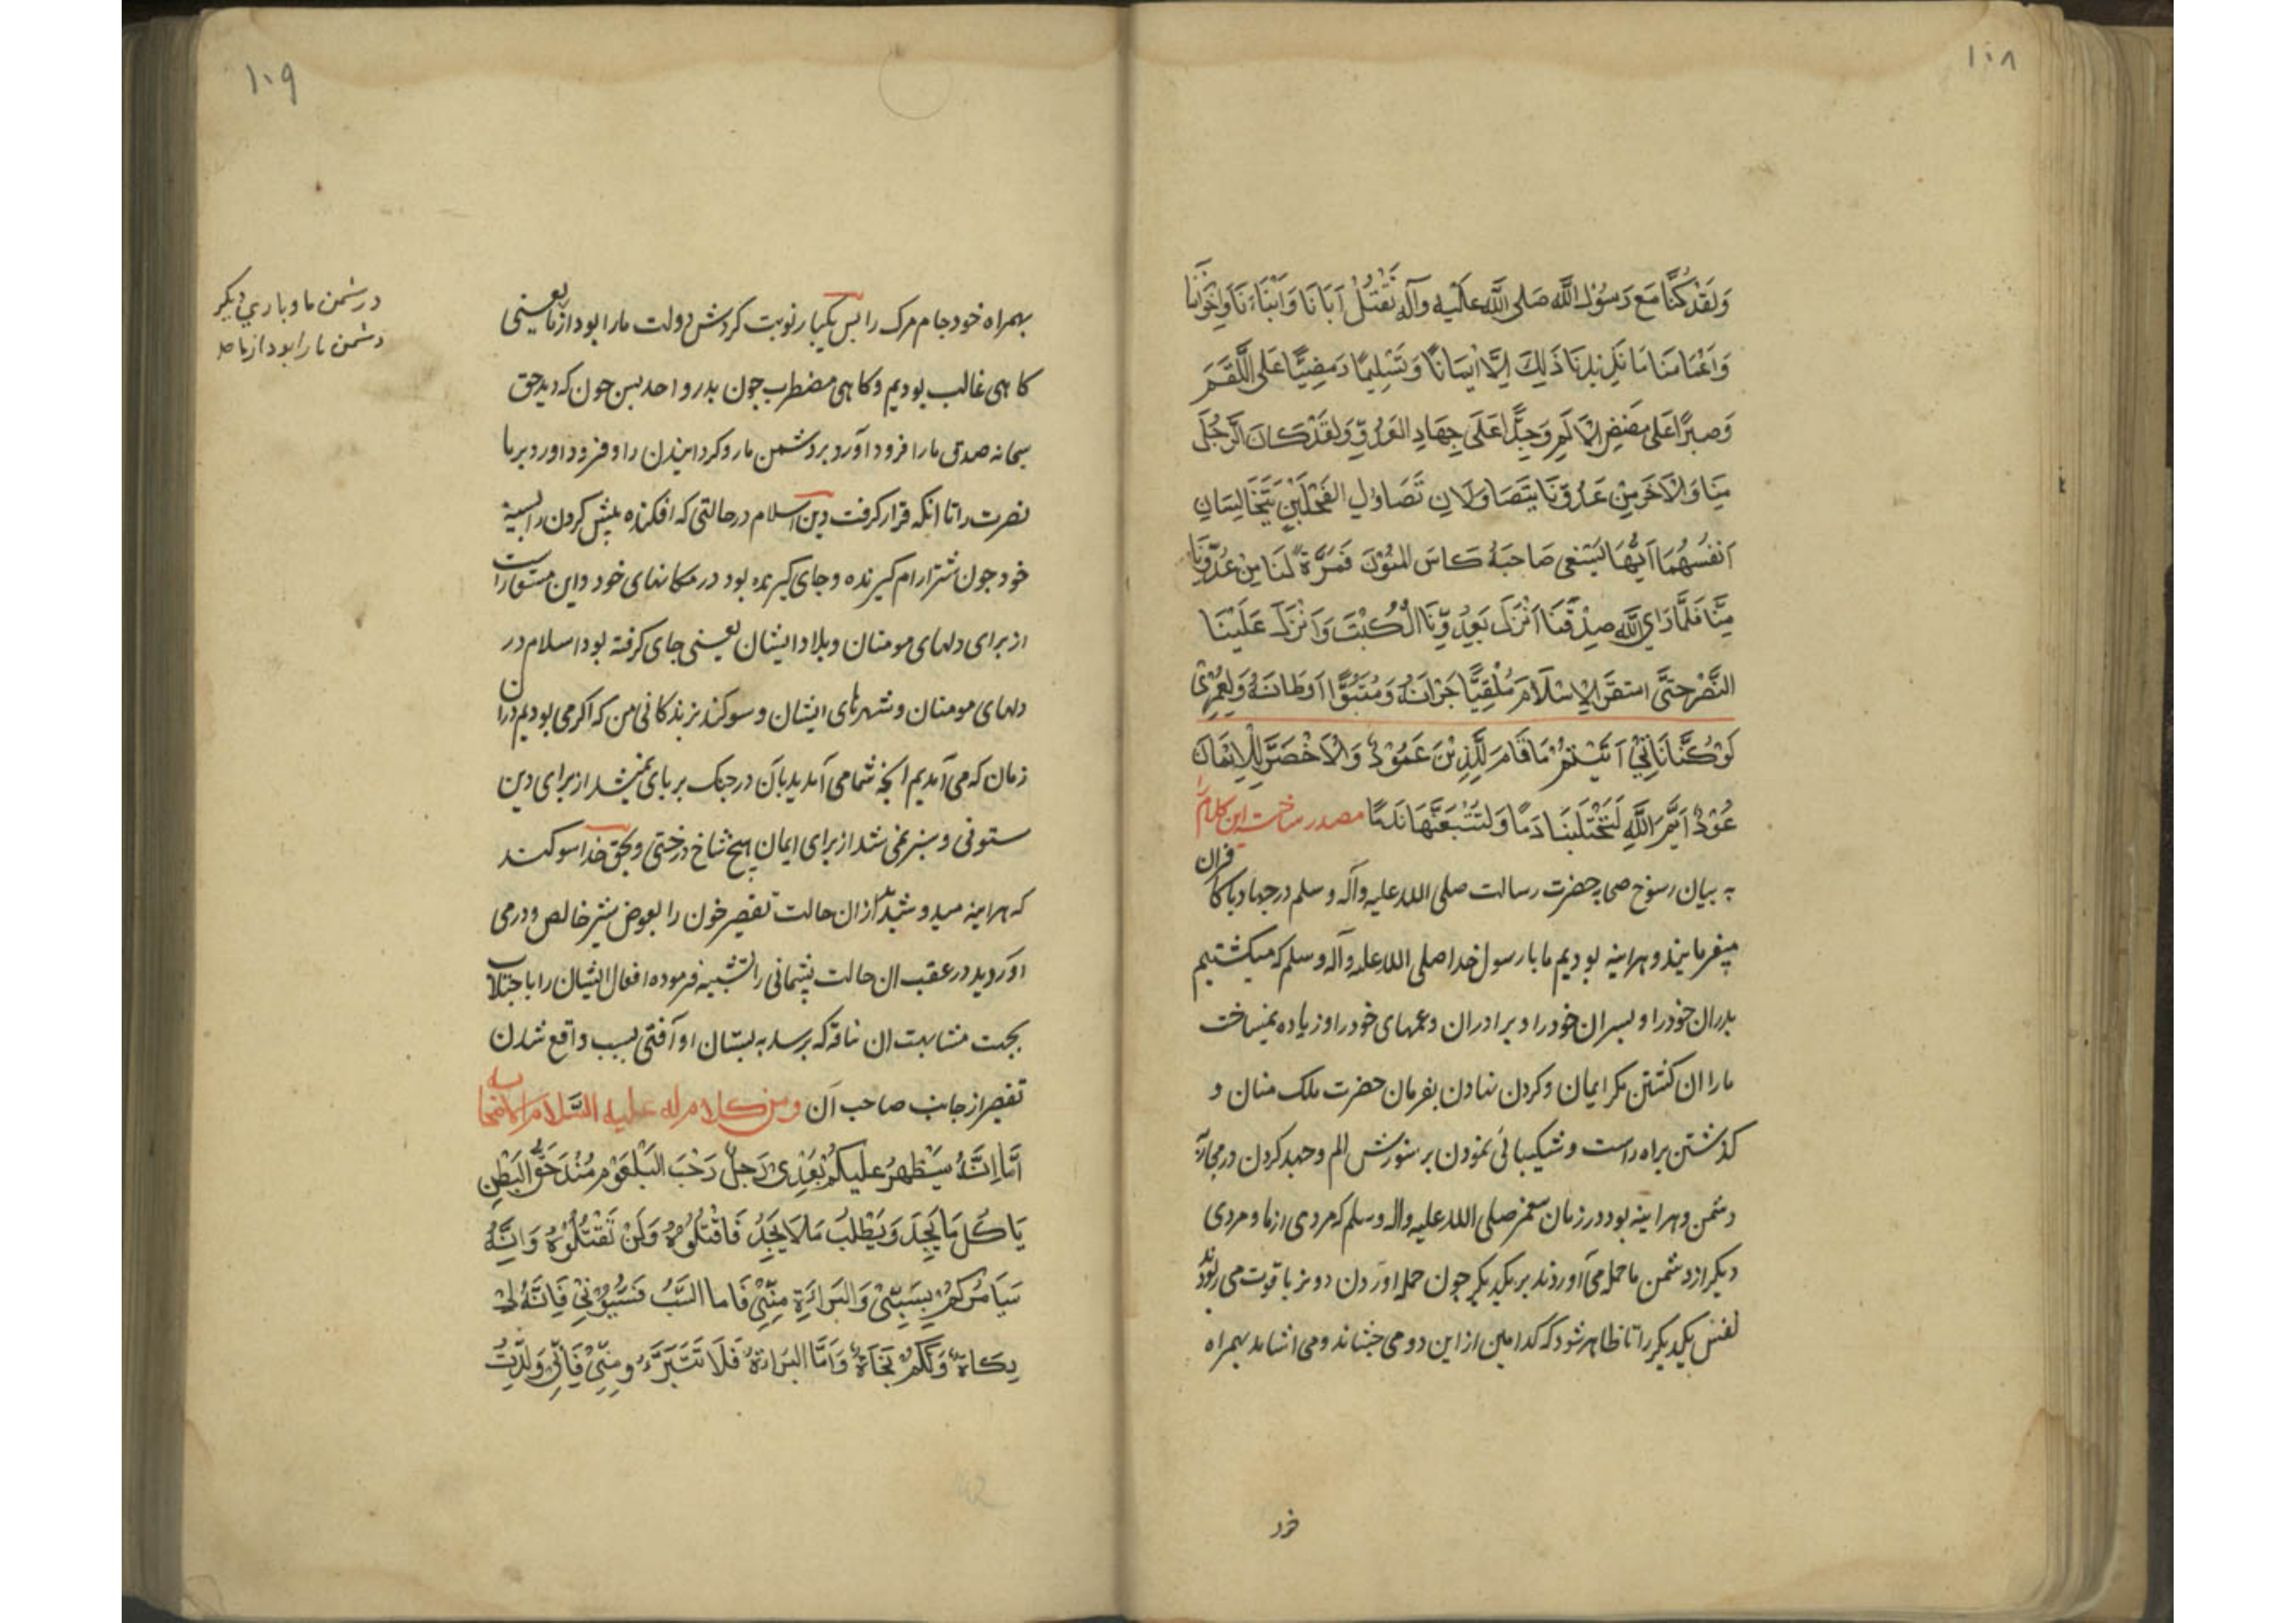 ۱۰۸
وَلَقَدْ كُنَّا مَعَ رَسُوْلِ اللَّهِ صَلى اللَّه عَلَيْهِ وآله نَقْتُلُ آبَانَا وَاَبْنَاءَنَا وَاِخْوَانَنَا
وَاَعْمَامَنَا مَا يَزِيْدُنَا ذَلِكَ اِلَّا اِيْمَانًا وَتَسْلِيمًا وَمَضِيًّا عَلَى اللَّقَمِ
وَصَبرًا عَلى مَضَضِ الْاَلَمِ وَجِدًّا عَلَى جِهَادِ العَدُوِّ وَلَقَدْ كَانَ الرَّجُلُ
مِنَا وَالْاَخَر مِنْ عَدُوِّنَا يَتَصَاوَلَانِ تَصَاوُلِ الفَحْلَيْنِ يَتَخَالَسَانِ
اَنْفُسَهُمَا اَيُّهَا يَسْقِى صَاحِبَهُ كَاسَ المَنُوْنَ فَمَرَّةً لَنَا مِنْ عَدُوِّنَا
مِنَّا فَلَمَّا رَاي اللَّه صِدْقَنَا اَنْزَلَ بَعِدُوِّنَا الْكُبْتَ وَاَنْزَلَ عَلَيْنَا
النَّصْرَ حَتَّى استقرَّ الْاِسْلَامُ مُلْقِيًّا جَرَانَهُ وَمُتَبَوَّا اَوطَانَهُ وَلعَمْرِىْ
لَوْ كُنَّا نَاتِىْ اَتَيْتُمْ مَا قَامَ لِلَّذِيْنَ عَمُوْدٌ وَالْاَخْضَرَّ لِلْاِيْمَانِ
عُوْدٌ اَيْمَ اللَّهِ لَتَحْتَلَبَنَّهَا دَمًا وَلَتَتْبَعَنَّهَا نَدَمًا مصدر ساخت این کلام را
به بیان رسوخ صحابه حضرت رسالت صلی الله علیه وآله وسلم در جهاد با کافران
میفرمایند و هراینه بودیم ما با رسول خدا صلی الله علیه وآله وسلم که میکشتیم
پدران خود را و پسران خود را و برادران و عمهای خود را و زیاده نمیساخت
ما را ان کشتن مکر ایمان و کردن نهادن بفرمان حضرت ملک منان و
کذشتن براه راست و شکیبائی نمودن بر سوزش الم و جهد کردن در مجاربه
دشمن و هراینه بود در زمان پیغمبر صلی الله علیه واله وسلم که مردی از ما و مردی
دیکر از دشمن ما حمله می آوردند بر یکدیکر چون حمله اوردن دو نر با قوت می ربودند
نفس یکدیکر را تا ظاهر شود که کدامین از این دو می چشاند و می اشاماند بهمراه
خرد
۱۰۹
بهمراه خود جام مرک را پس یکبار نوبت کردش دولت ما را بود از ما یعنی
در دشمن ما و باری دیکر
دشمن ما را بود از ما صح
کاهی غالب بودیم و کاهی مضطرب چون بدر و احد پس چون که دید حق
سبحانه صدق ما را فرود آورد بر دشمن ما رو کردانیدن را و فرود اورد بر ما
نصرت را تا انکه قرار کرفت دین اسلام در حالتی که افکنده پیش کردن را بسینه
خود چون شتر ارام کیرنده و جای کیرنده بود در مکانهای خود و این مستعار است
از برای دلهای مومنان و بلاد ایشان یعنی جای کرفته بود اسلام در
دلهای مومنان و شهرهای ایشان و سوکند بزندکانی من که اکر می بودیم در ان
زمان که می آمدیم انچه شما می آمدید بان در جنک بر پای نمیشد از برای دین
ستونی و سبز نمی شد از برای ایمان هیچ شاخ درختی و بحق خدا سوکند
که هراینه میدوشید از ان حالت تقصیر خون را بعوض شیر خالص و در می
اورید در عقب ان حالت پشیمانی را تشبیه فرموده افعال ایشان را باجتلاب
بجهت مشابهت ان ناقه که برسد به پستان او آفتی بسبب واقع شدن
تقصیر از جانب صاحب آن ومن كلام له عليه السَّلام لاصحابه
اَمَّا اِنَّهُ سَيَظهرُ عَليكُمْ بَعْدِىْ رَجلٌ رَحْبَ البَلْعُوْمِ مُنْدَحَقُّ البَطْنِ
يَاكُلُ مَا يَجِدُ وَيَطْلُبُ مَا لَا يَجِدُ فَاقْتُلُوْهُ وَلَنْ تَقْتُلُوْهُ وَاِنَّهُ
سَيَامُرُكُمْ بِسَبِّىْ وَالبَرَاءَةِ مِنِّىْ فَاما السَّبُّ فَسُبُّوْنِىْ فَاِنَّهُ لِىْ
زكَاةٌ وَلَكُمْ نَجَاةٌ وَاَمَّا البَرَاءَةُ فَلَا تَتَبَرَّءُو مِنِّىْ فَاِنِّىْ وَلِدْتُ